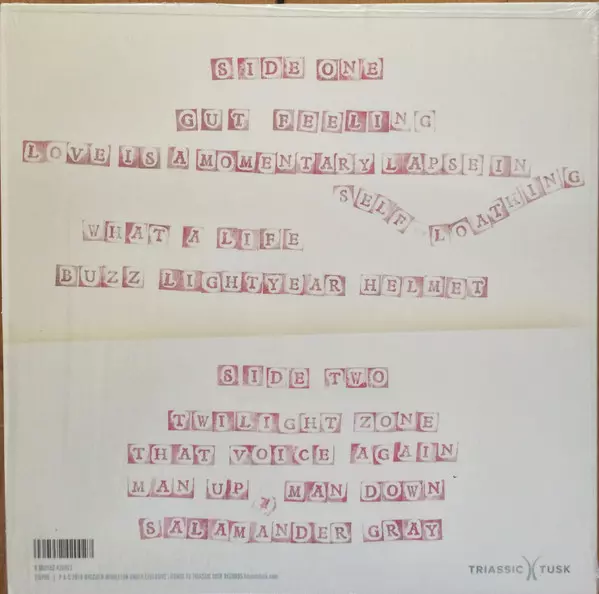 SIDE ONE
GUT FEELING
LOVE IS A MOMENTARY LAPSE IN
SELF LOATHING
WHAT A LIFE
BUZZ LIGHTYEAR HELMET
SIDE TWO
TWILIGHT ZONE
THAT VOICE AGAIN
MAN UP, MAN DOWN
SALAMANDER GRAY
TRIASSIC TUSK